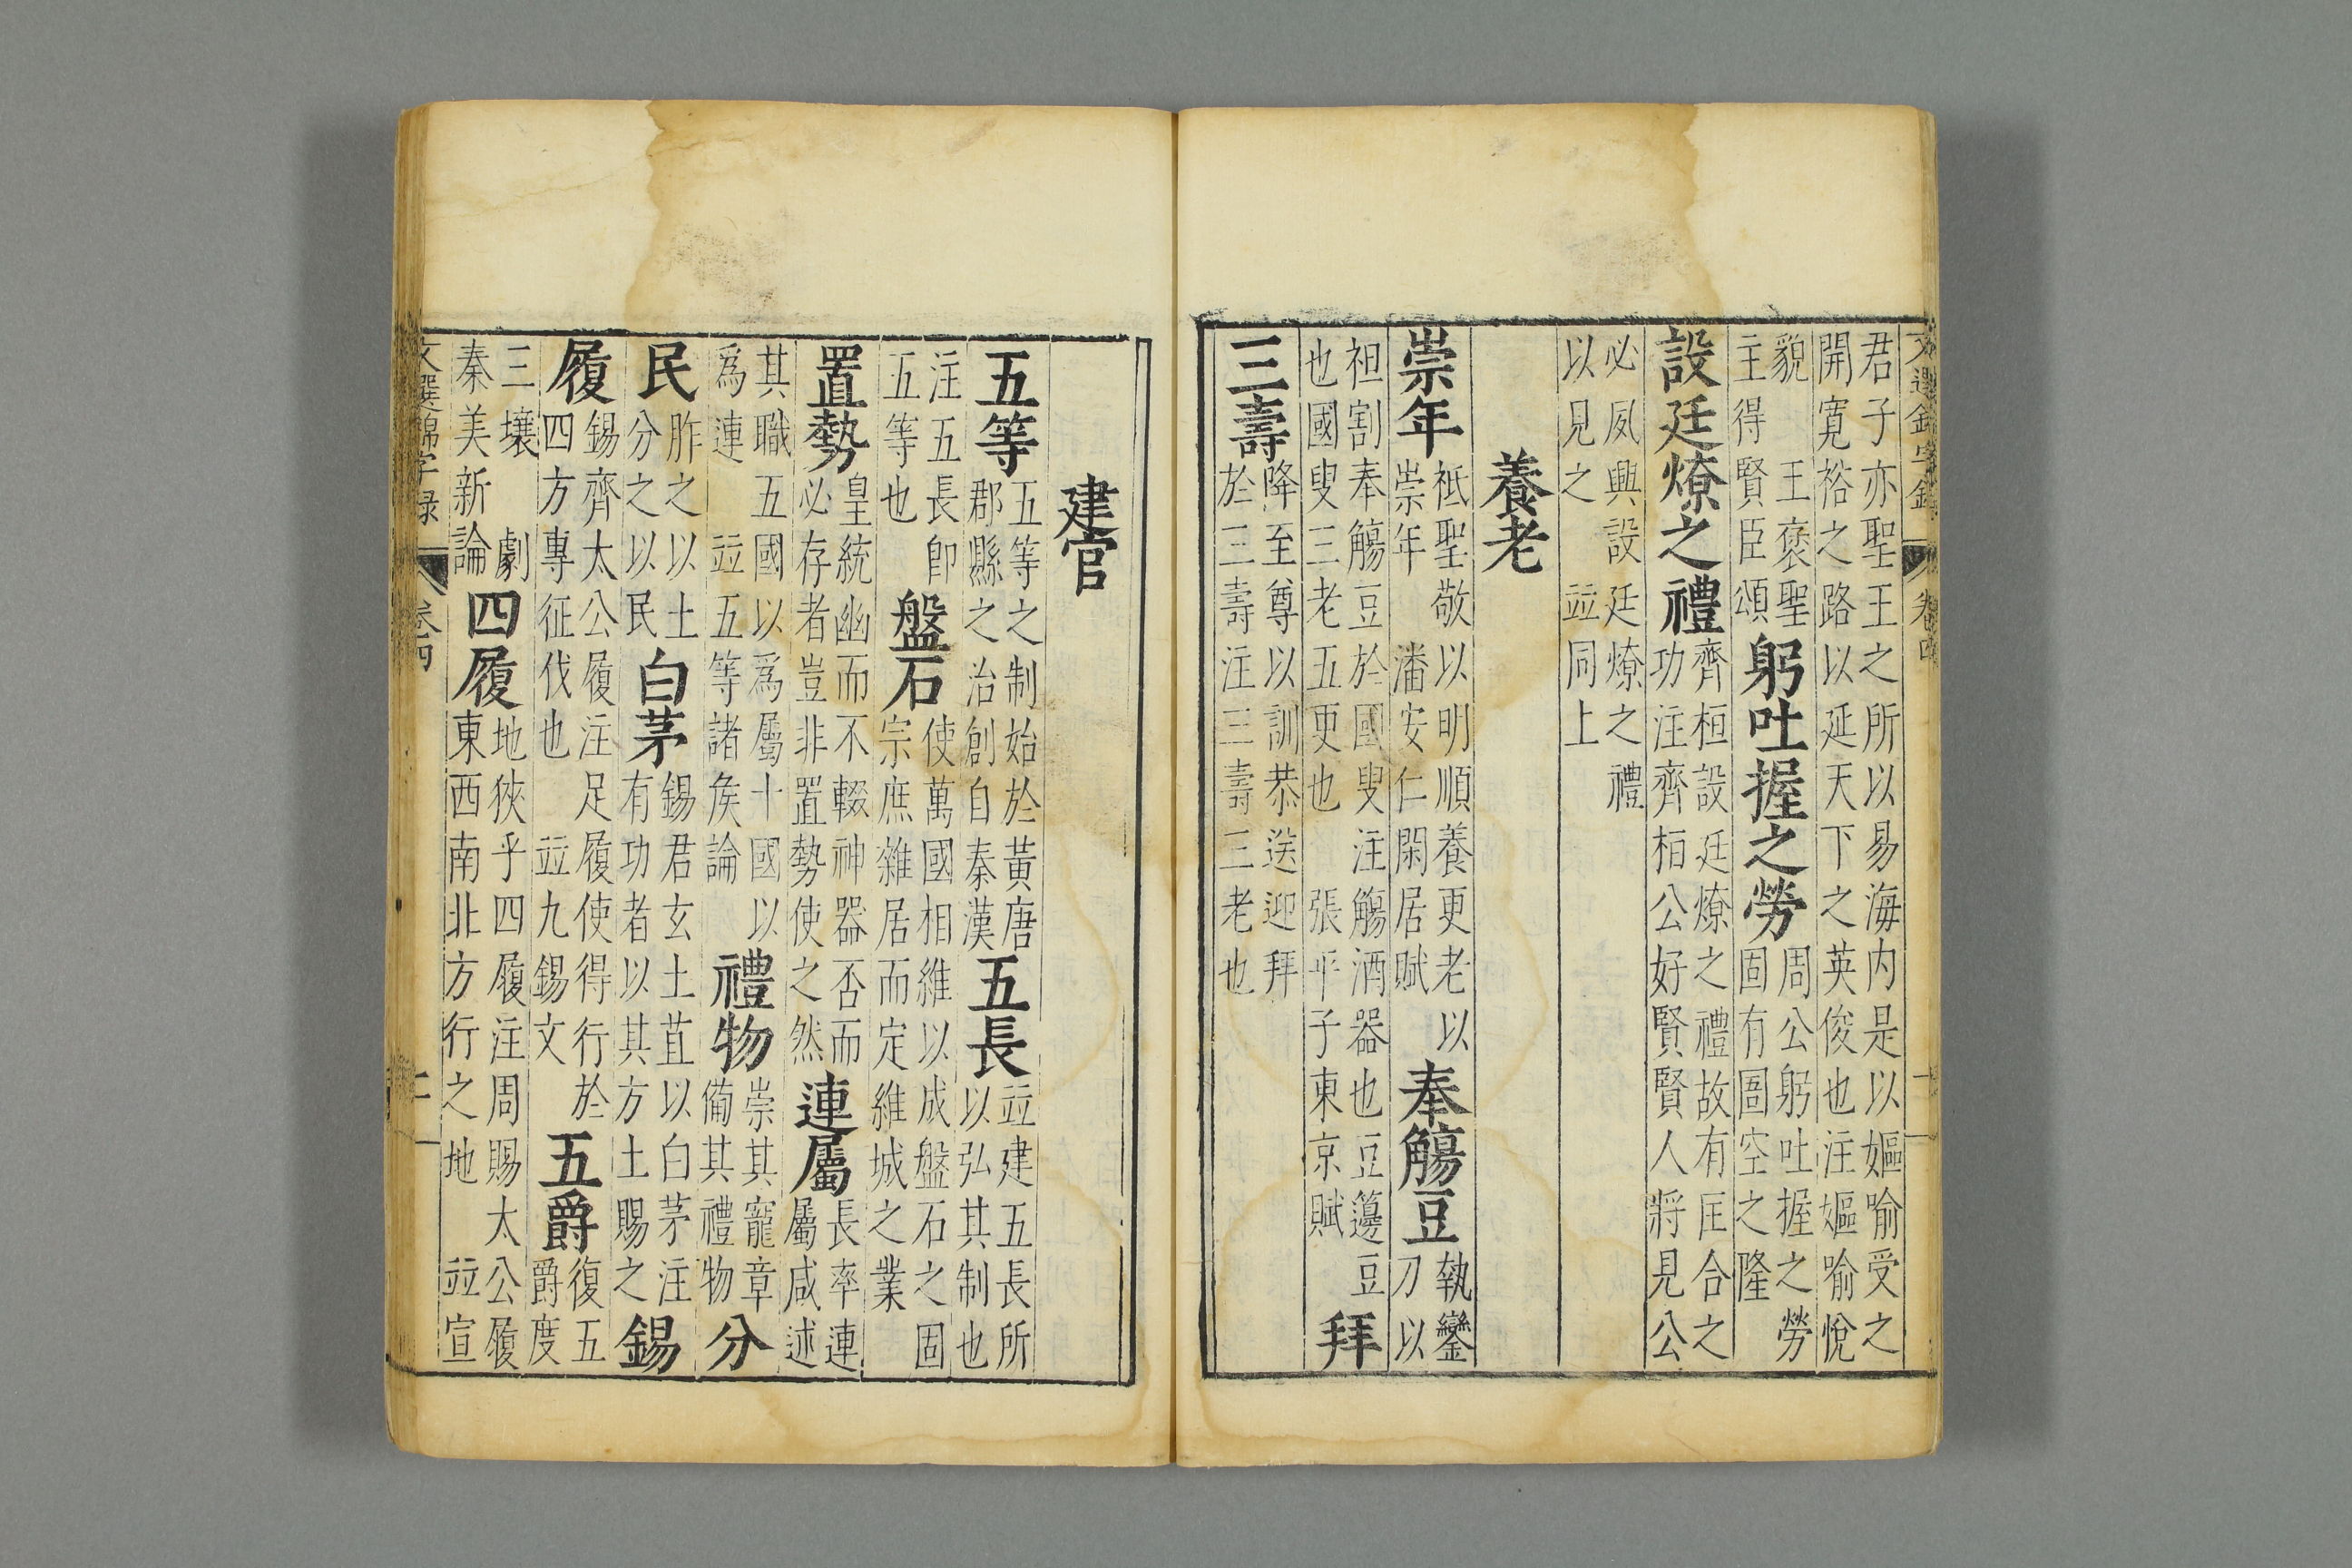 文選錦字錄 卷四 十
君子亦聖王之所以易海内是以嫗喻受之開寛裕之路以延天下之英俊也注嫗喻悅
貌 王褒聖主得賢臣頌 躬吐握之勞 周公躬吐握之勞固有圄空之隆
設廷燎之禮 齊桓設廷燎之禮故有匡合之功注齊桓公好賢賢人將見公
必夙興設廷燎之禮以見之 並同上
養老
崇年 祗聖敬以明順養更老以崇年 潘安仁閑居賦 奉觴豆 執鑾刀以
袒割奉觴豆於國叟注觴酒器也豆籩豆也國叟三老五更也 張平子東京賦 拜
三壽 降至尊以訓恭送迎拜於三壽注三壽三老也
建官
五等 五等之制始於黃唐郡縣之治創自秦漢 五長 並建五長所以弘其制也
注五長卽五等也 盤石 使萬國相維以成盤石之固宗庶雜居而定維城之業
置勢 皇統幽而不輟神器否而必存者豈非置勢使之然 連屬 長率連屬咸述
其職五國以爲屬十國以爲連 並五等諸侯論 禮物 崇其寵章備其禮物 分
民 胙之以土分之以民 白茅 錫君玄土苴以白茅注有功者以其方土賜之 錫
履 錫齊太公履注足履使得行於四方專征伐也 並九錫文 五爵 復五爵度
三壤 劇秦美新論 四履 地狹乎四履注周賜太公履東西南北方行之地 並宣
文選錦字録 卷四